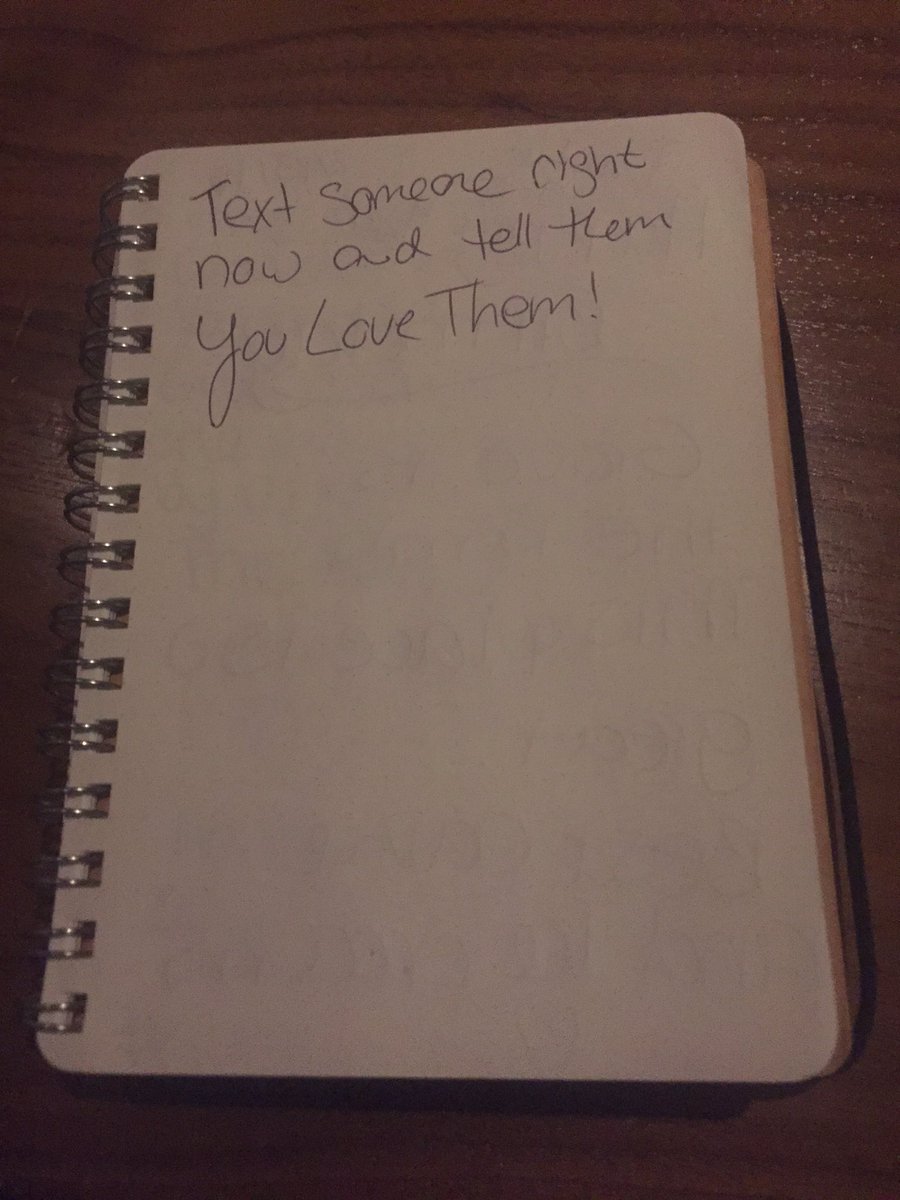 Text someone right
now and tell them
You Love Them!